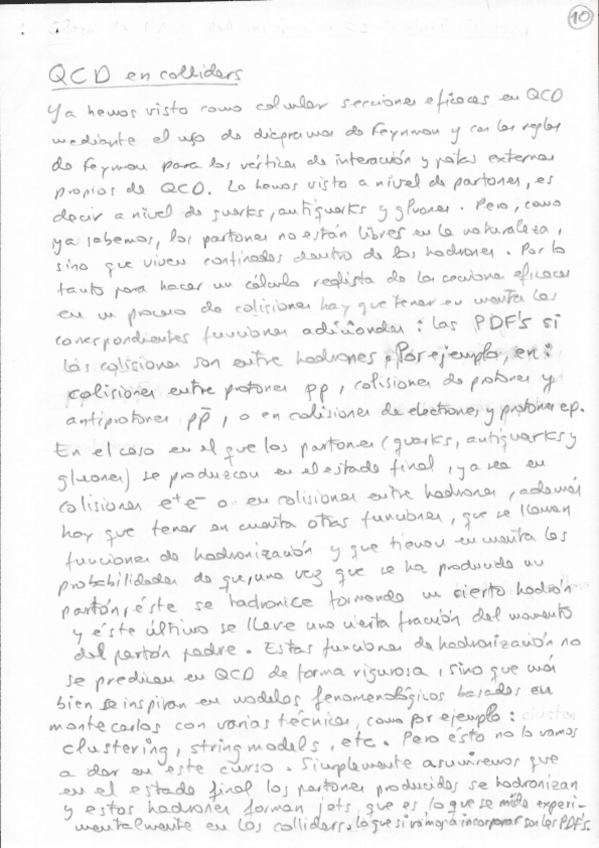 10
QCD en colliders
Ya hemos visto como calcular secciones eficaces en QCD
mediante el uso de diagramas de Feynman y con las reglas
de Feynman para los vértices de interacción y patas externas
propios de QCD. Lo hemos visto a nivel de partones, es
decir a nivel de quarks, antiquarks y gluones. Pero, como
ya sabemos, los partones no están libres en la naturaleza,
sino que viven confinados dentro de los hadrones. Por lo
tanto para hacer un cálculo realista de las secciones eficaces
en un proceso de colisiones hay que tener en cuenta las
correspondientes funciones adicionales: las PDF's si
las colisiones son entre hadrones. Por ejemplo, en:
colisiones entre protones pp, colisiones de protones y
antiprotones pp̄, o en colisiones de electrones y protones ep.
En el caso en el que los partones (quarks, antiquarks y
gluones) se produzcan en el estado final, ya sea en
colisiones e+e- o en colisiones entre hadrones, además
hay que tener en cuenta otras funciones, que se llaman
funciones de hadronización y que tienen en cuenta las
probabilidades de que, una vez que se ha producido un
partón, éste se hadronice formando un cierto hadrón
y éste último se lleve una cierta fracción del momento
del partón padre. Estas funciones de hadronización no
se predicen en QCD de forma rigurosa, sino que más
bien se inspiran en modelos fenomenológicos basados en
montecarlos con varias técnicas, como por ejemplo:
clustering, string models, etc. Pero ésto no lo vamos
a dar en este curso. Simplemente asumiremos que
en el estado final los partones producidos se hadronizan
y estos hadrones forman jets que es lo que se mide experi-
mentalmente en los colliders. Lo que si vamos a incorporar son las PDF's.